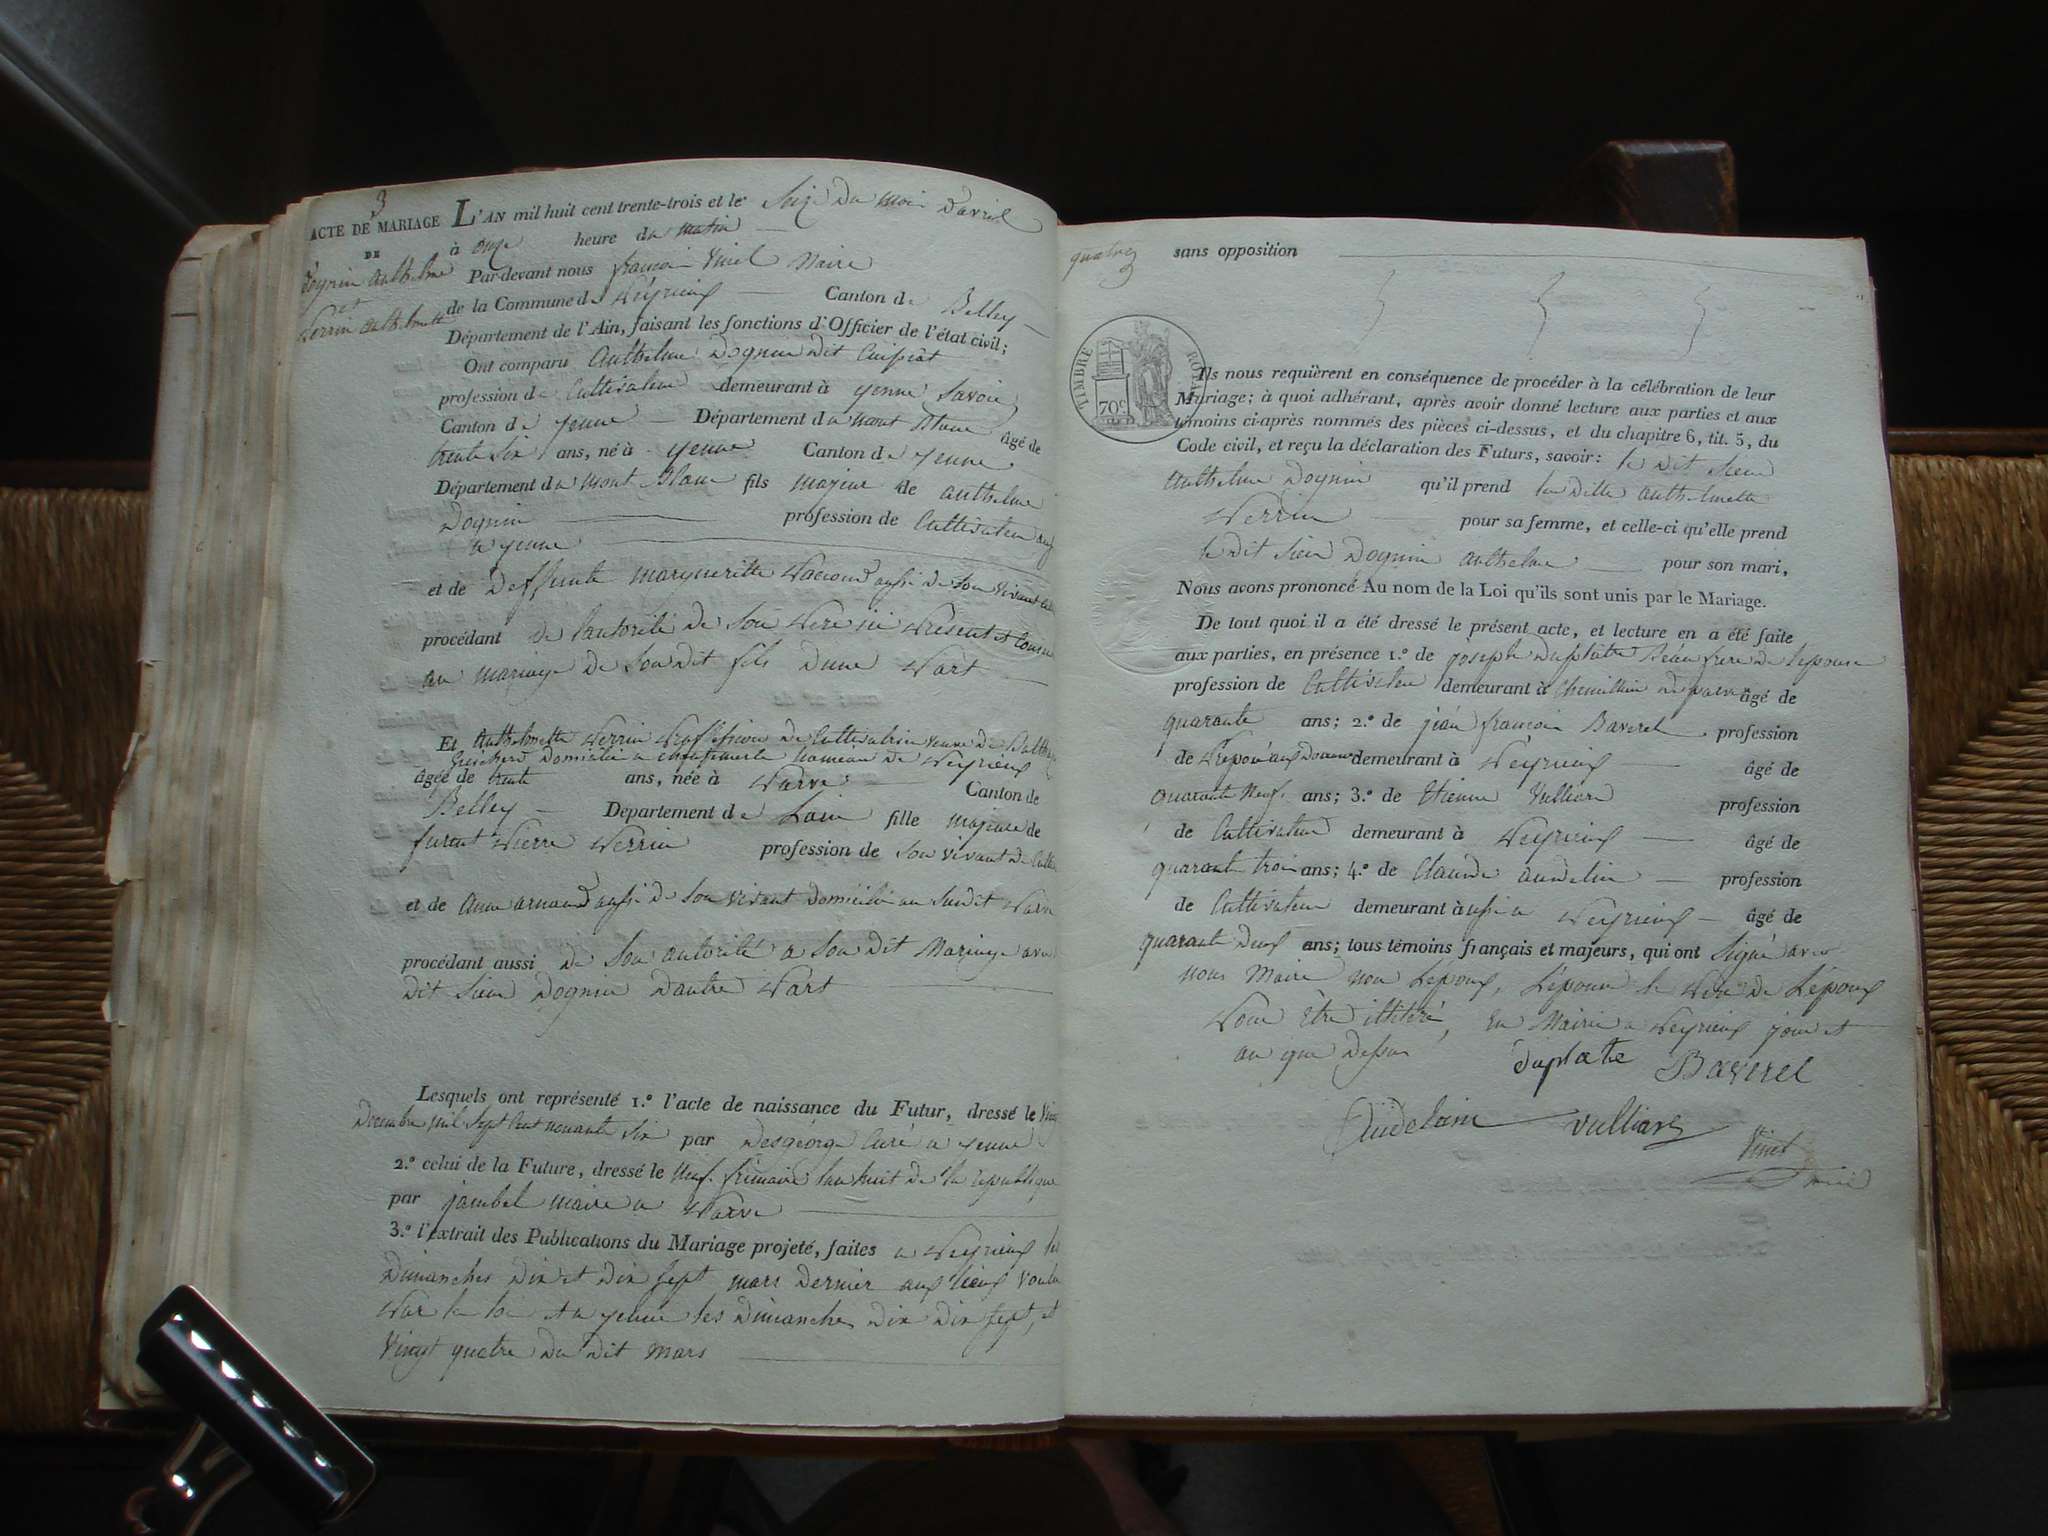 3
ACTE DE MARIAGE
DE
Dognin anthelme
et
Perrin anthelmette
L'AN mil huit cent trente-trois et le Seize du mois d'avril
à onze heure du matin
Par-devant nous françois Vinel Maire
de la Commune de Peyrieux Canton de Belley
Département de l'Ain, faisant les fonctions d'Officier de l'état civil;
Ont comparu anthelme Dognin dit
profession de Cultivateur demeurant à yenne Savoie
Canton de yenne Département du mont Blanc âgé de
trente six ans, né à yenne Canton de yenne
Département du mont Blanc fils majeur de anthelme
Dognin profession de Cultivateur
a yenne
et de deffunte margueritte aussi de son vivant
procédant de l'autorité de son Pere ici Présent et
au mariage de son dit fils d'une Part
Et Anthelmette Perrin Proffession de Cultivatrice veuve de
domiciliée a hameau de Peyrieux
âgée de trente ans, née à Parve Canton de
Belley Département de Lain fille majeure de
furent Pierre Perrin profession de son vivant
et de anne arnaud aussi de son vivant domiciliée au susdit Parve
procédant aussi de son autorité a son dit Mariage avec
dit sieur Dognin d'autre Part
Lesquels ont représenté 1.º l'acte de naissance du Futur, dressé le
Décembre mil sept cent nonante six par Desgeorge Curé a yenne
2.º celui de la Future, dressé le neuf frimaire l'an huit de la république
par jambel maire a Parve
3.º l'extrait des Publications du Mariage projeté, faites a Peyrieux les
Dimanches dix et dix sept mars dernier aux lieux voulu
Par la loi et a yenne les dimanches dix dix sept, et
vingt quatre du dit mars
quatre
sans opposition
TIMBRE ROYAL
70c
Ils nous requièrent en conséquence de procéder à la célébration de leur
Mariage; à quoi adhérant, après avoir donné lecture aux parties et aux
témoins ci-après nommés des pièces ci-dessus, et du chapitre 6, tit. 5, du
Code civil, et reçu la déclaration des Futurs, savoir: le dit sieur
anthelme Dognin qu'il prend la ditte anthelmette
Perrin pour sa femme, et celle-ci qu'elle prend
le dit sieur Dognin anthelme pour son mari,
Nous avons prononcé Au nom de la Loi qu'ils sont unis par le Mariage.
De tout quoi il a été dressé le présent acte, et lecture en a été faite
aux parties, en présence 1.º de joseph duplatre Beau frere de lepouse
profession de Cultivateur demeurant à âgé de
quarante ans; 2.º de jean françois Baverel profession
de demeurant à Peyrieux âgé de
quarante neuf ans; 3.º de Etienne Vulliard profession
de Cultivateur demeurant à Peyrieux âgé de
quarante trois ans; 4.º de Claude audelin profession
de Cultivateur demeurant à aussi a Peyrieux âgé de
quarante deux ans; tous témoins français et majeurs, qui ont signé avec
nous Maire non L'époux, L'épouse le Pere de L'époux
Pour être illitéré, En Mairie a Peyrieux jour et
an que dessus
duplatre Baverel
vulliard
Vinel